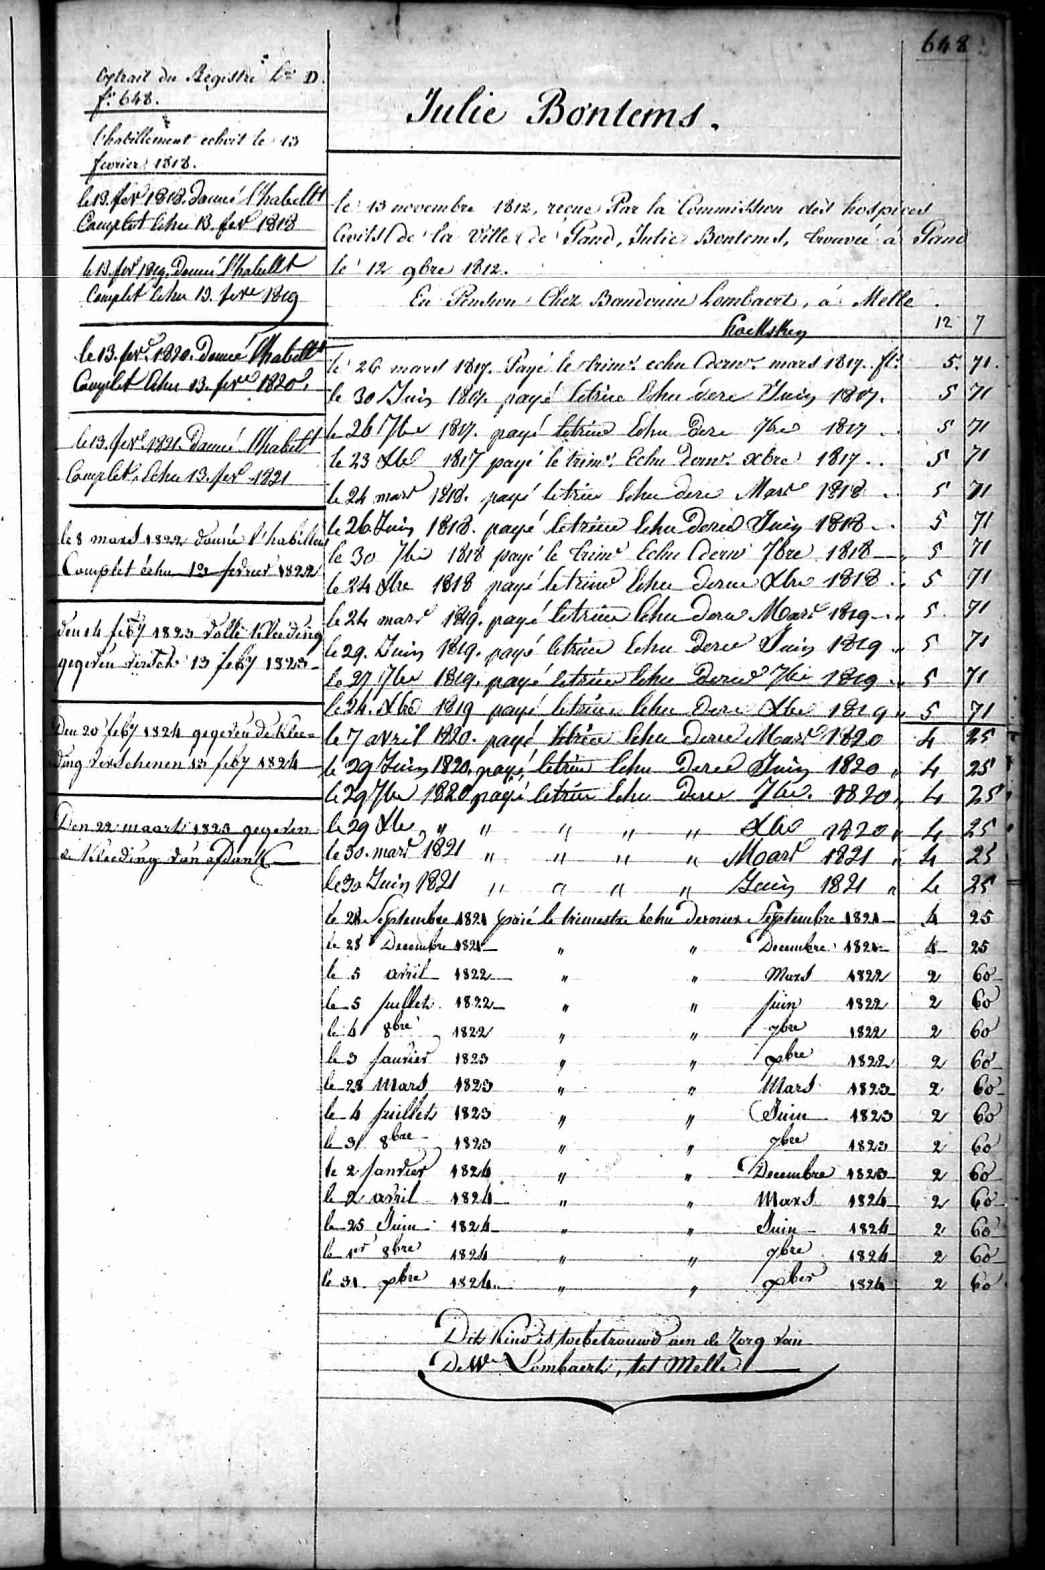 648
Extrait du Registre L.ra D.
f.o 648.
l'habillement echoit le 13
fevrier 1818.
le 13. fevr 1818. Donné l'habillt
Complet Echu 13. fevr 1818
le 13. fevr 1819. Donné l'habillt
Complet Echu 13. fevre 1819
le 13. fevr. 1820. Donné l'habillt
Complet Echu 13. fevre 1820.
le 13. fevr 1821. Donné l'habillt
Complet. Echu 13. fevr 1821
le 8 mars 1822 donné l'habillent
Complet échu 13 fevrier 1822
den 14 feb7 1823 volle kleeding
gegeven versch: 13 feb7 1823
Den 20 feb7 1824 gegeven de klee=
ding verschenen 13 feb7 1824
Den 22 maart 1825 gegeven
de kleeding van afdank
Julie Bontems.
le 13 novembre 1812, reçue Par la Commission des hospices
Civils de la Ville de Gand, Julie Bontems, trouvée à Gand
le 12 9bre 1812.
En Pension Chez Baudouin Lombaert, à Melle.
12 7
le 26 mars 1817. Payé le trimr. echu dernr. mars 1817. fls. 5. 71.
le 30 Juin 1817. payé letrim Echu dere Juin 1817. 5 71
le 26 7bre 1817. payé letrim Echu Dere 7bre 1817 5 71
le 23 Xbre 1817 payé le trimr. Echu dernr. xbre 1817. 5 71
le 24 mars 1818. payé letrim Echu dere Mars 1818 5 71
le 26 Juin 1818. payé letrim Echu Dere Juin 1818 5 71
le 30 7bre 1818 payé le trimr Echu dernr 7bre 1818 5 71
le 24 Xbre 1818 payé letrim Echu dere Xbre 1818 5 71
le 24 mars 1819. payé letrim Echu dere Mars 1819 5 71
le 29. Juin 1819. payé letrim Echu Dere Juin 1819 5 71
le 27 7bre 1819. payé letrim Echu Dere 7bre 1819 5 71
le 24. Xbre 1819 payé letrim Echu Dere Xbre 1819 5 71
le 7 avril 1820. payé letrim Echu Dere Mars 1820 4 25
le 29 Juin 1820. payé letrim Echu Dere Juin 1820 4 25
le 29 7bre 1820 payé letrim Echu Dere 7bre. 1820 4 25
le 29 Xbre " " " " " Xbre 1820 " 4 25
le 30. mars 1821 " " " " Mars 1821 " 4 25
le 30 Juin 1821 " " " " Juin 1821 " 4 25
le 28 Septembre 1821 payé le trimestre échu dernier Septembre 1821 4 25
le 28 Decembre 1821 " " Decembre 1821 4 25
le 5 avril 1822 " " Mars 1822 2 60
le 5 Juillet 1822 " " juin 1822 2 60
le 4 8bre 1822 " " 7bre 1822 2 60
le 3 Janvier 1823 " " Xbre 1822 2 60
le 28 Mars 1823 " " Mars 1823 2 60
le 4 Juillet 1823 " " Juin 1823 2 60
le 3 8bre 1823 " " 7bre 1823 2 60
le 2 Janvier 1824 " " Decembre 1823 2 60
le 2 avril 1824 " " Mars 1824 2 60
le 25 Juin 1824 " " Juin 1824 2 60
le 1er 8bre 1824 " " 7bre 1824 2 60
le 31. Xbre 1824 " " Xber 1824 2 60
Dit Kind is toebetrouwd aen de Zorg van
De We Lombaert, tot Melle